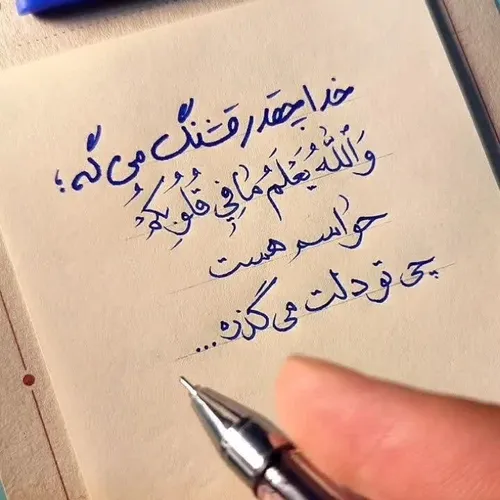 خدا چقدر قشنگ می گه؛
وَاللّٰهُ يَعْلَمُ مٰا فِي قُلُوبِكُمْ
حواسم هست
چی تو دلت می گذره...